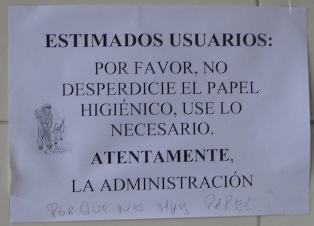 ESTIMADOS USUARIOS:
POR FAVOR, NO
DESPERDICIE EL PAPEL
HIGIÉNICO, USE LO
NECESARIO.
ATENTAMENTE,
LA ADMINISTRACIÓN
PORQUE NO HAY PAPEL?